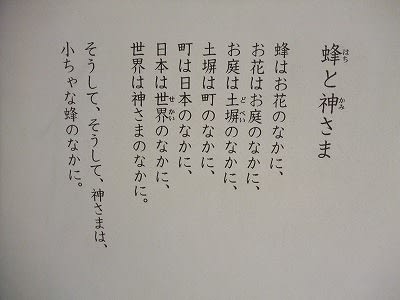 蜂と神さま
蜂はお花のなかに、
お花はお庭のなかに、
お庭は土塀のなかに、
土塀は町のなかに、
町は日本のなかに、
日本は世界のなかに、
世界は神さまのなかに。
そうして、そうして、神さまは、
小ちゃな蜂のなかに。